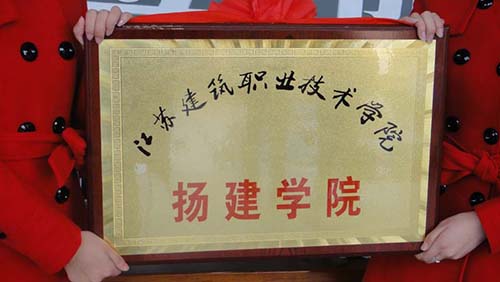 江苏建筑职业技术学院
扬建学院